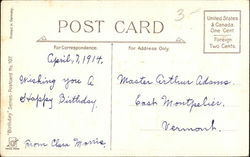 3-
POST CARD
United States
& Canada
One Cent
Foreign
Two Cents
For Correspondence.
For Address Only.
April, 7, 1914.
Wishing you A
Happy Birthday.
From Clara Morris.
Master Arthur Adams.
East Montpelier.
Vermont.
"Birthday" Series Postcard No. 107.